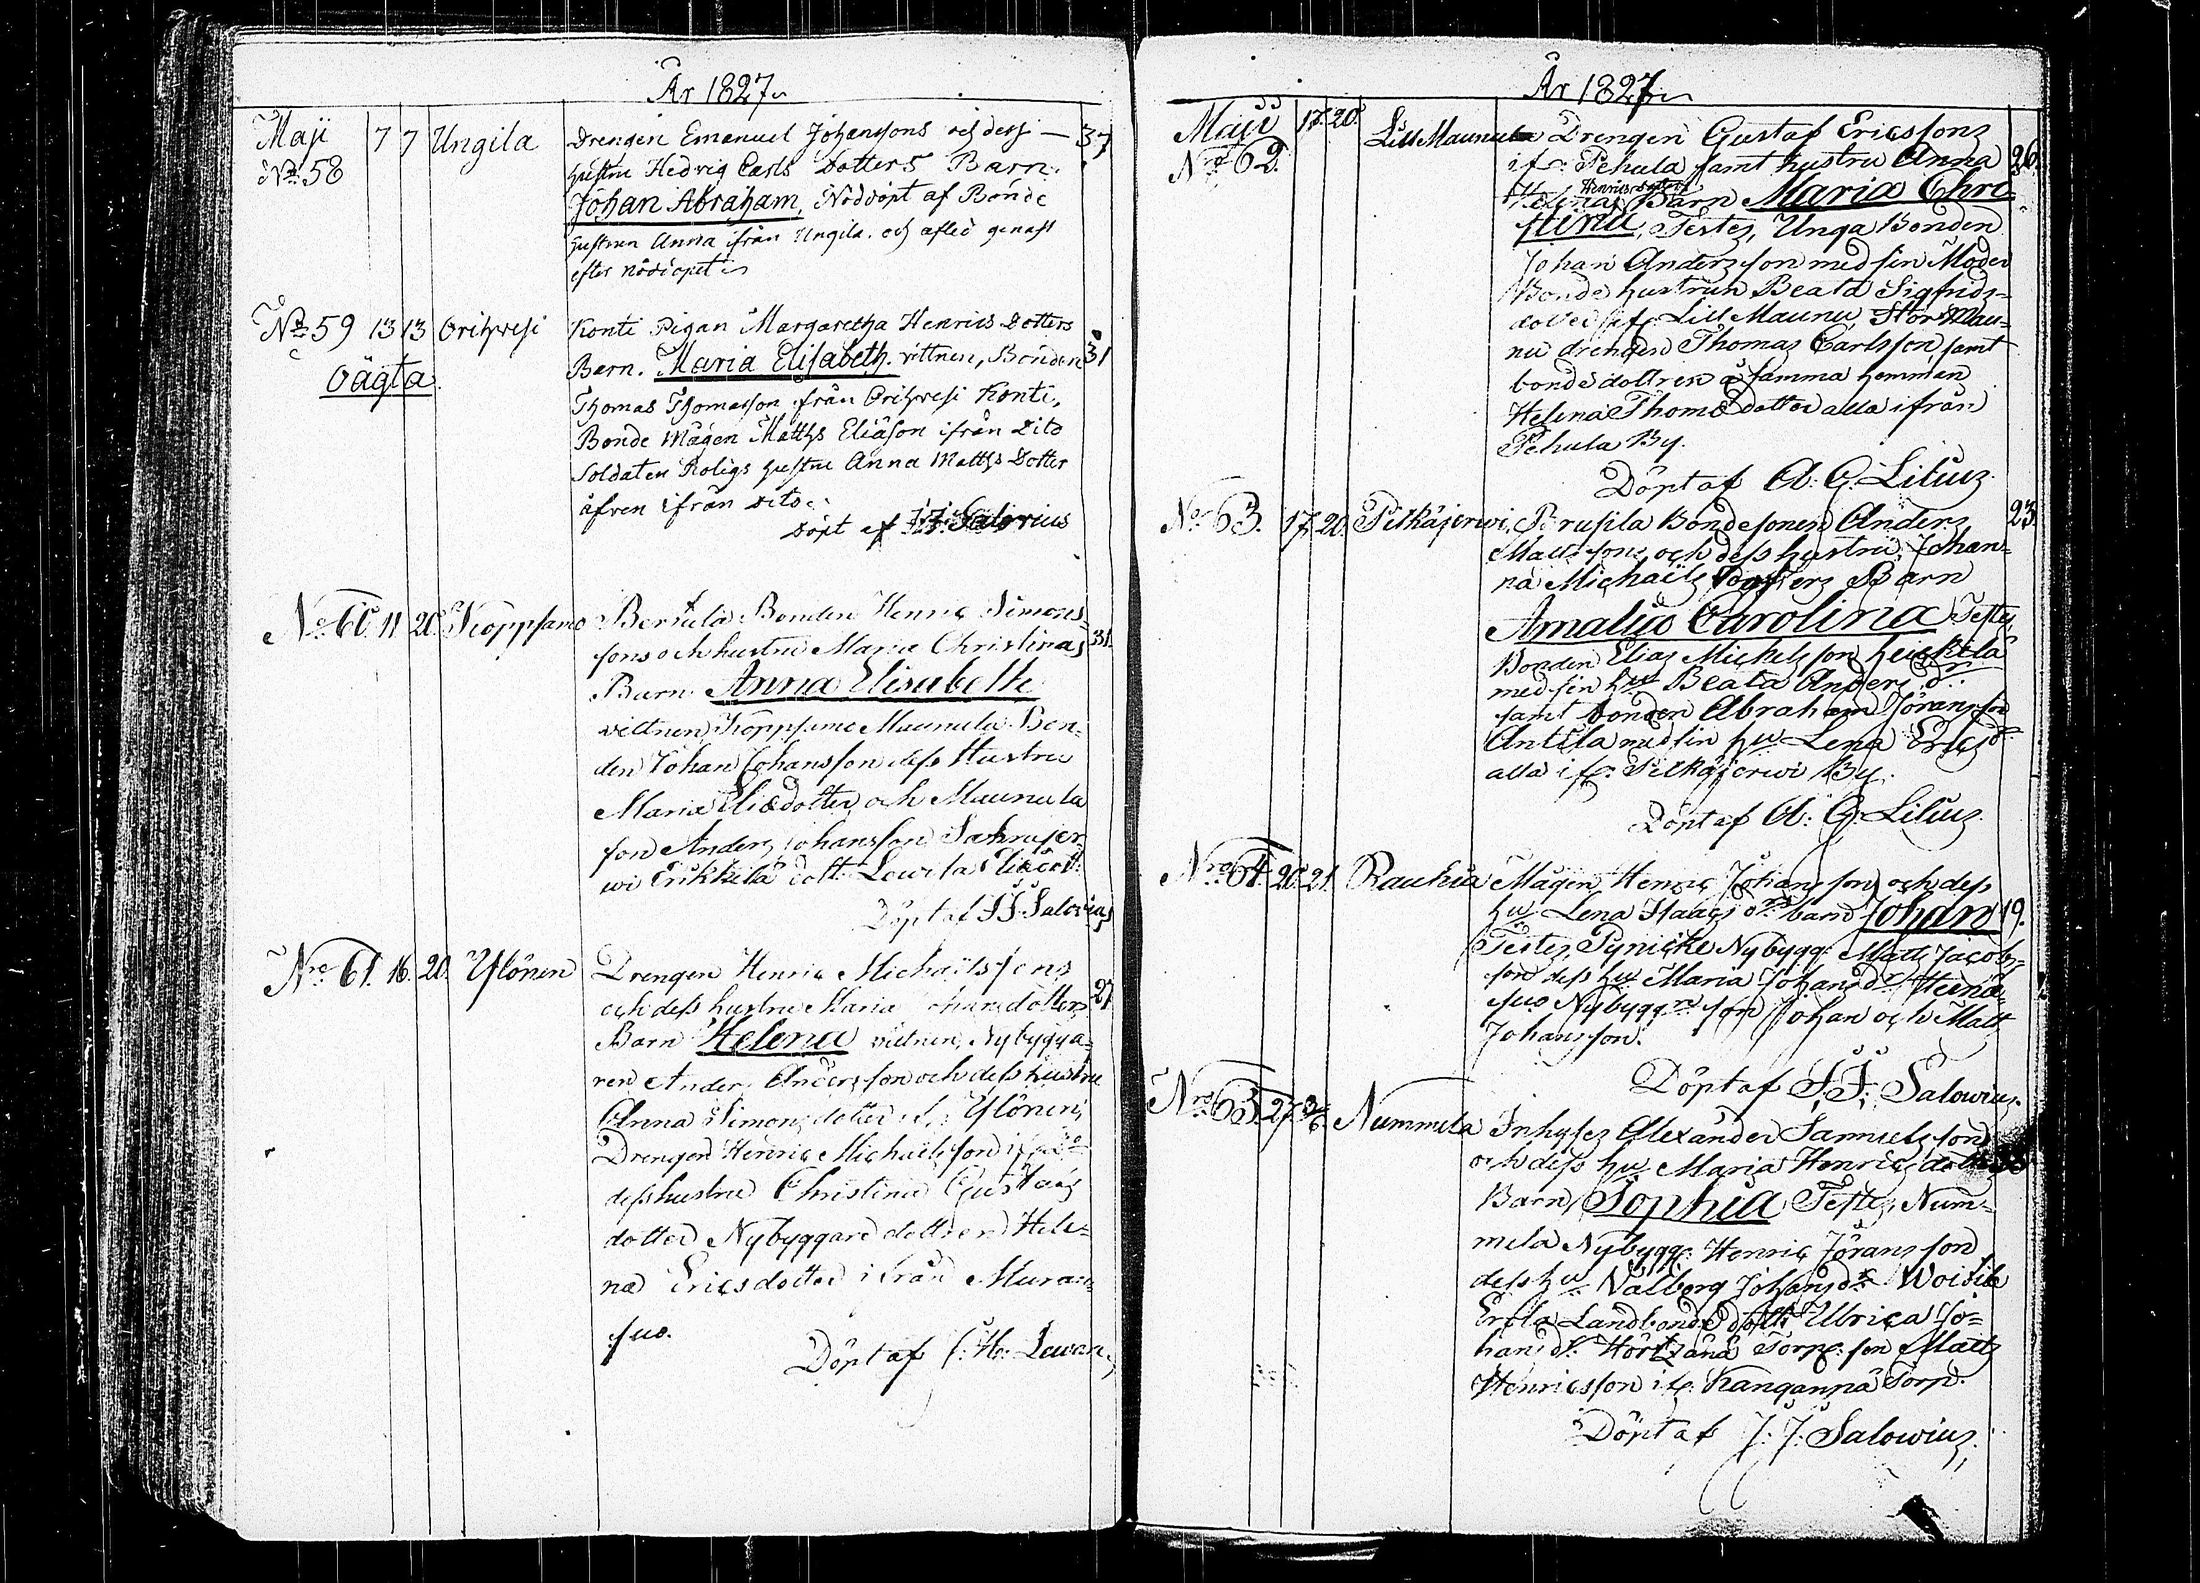 År 1827
Maji 7 7 Ungila Drengen Emanuel Johanssons och dess 37
No 58 hustru Hedvig Carls Dotters Barn.
Johan Abraham, Nöddöpt af Bonde
hustrun Anna ifrån Ungila. och afled genast
efter nöddopet
No 59 13 13 Orihvesi Konti Pigan Margaretha Henrics Dotters
Oägta Barn. Maria Elisabeth. vittnen, Bonden 31
Thomas Thomasson från Orihvesi Konti,
Bonde Mågen Matths Eliäson ifrån Dito
Soldaten Roligs hustru Anna Matths Dotter
äfven ifrån dito
Döpt af J. J. Salovius
No 60. 11 20. Koppsamo Bertula Bonden Henric Simons-
sons och hustru Maria Christinas 31.
Barn Anna Elisabeth
vittnen Koppsamo Maunula Bon-
den Johan Johansson dess Hustru
Maria Eliædotter, och Maunula
son Anders Johansson Sahrajer-
wi Erikkilä dott. Lowisa Eliædott.
Döpt af J. J. Salovius
Nro 61. 16. 20. Ylönen Drengen Henric Michaelssons
och dess hustru Maria Johansdotters 27
Barn Helena vittnen, Nybygga-
ren Anders Andersson och dess hustru
Anna Simonsdotter if. Ylönen,
Drengen Henric Michaelsson if. do
dess hustru Christina Gustafs
dotter Nybyggare dottren Hele-
na Ericsdotter ifrån Muras-
suo.
Döpt af
År 1827
Maji 17. 20. Lill Maunula Drengen Gustaf Ericssons
No 62. if. Pehula samt hustru Anna 26.
Henricsdotters
Helenas Barn Maria Chri-
stina, Testes, Unga Bonden
Johan Andersson med sin Moder
Bonde hustrun Beata Sigfrids-
dotter if. Lill Maunu, Stor Mau-
nu drengen Thomas Carlsson samt
bondedottren å samma hemman
Helena Thomædotter alla ifrån
Pehula By.
Döpt af A. G. Lilius.
No 63. 17. 20. Pitkäjerwi. Prusila Bondesonen Anders 23.
Mattssons och dess hustru Johan-
na Michaels Dotters Barn
Amalia Carolina Testes,
Bonden Elias Michelsson Heickilä
med sin hu Beata Anders dr.
samt bonden Abraham Göransson
Antila med sin hu Lena Ericsdr
alla if. Pitkäjerwi By.
Döpt af A. G. Lilius.
Nro 64. 20. 21. Rauhia Mågen Henric Johansson och dess
hu Lena Isaacs drs barn Johan 19.
Testes, Nybygg. Matts Jacobs-
son dess hu Maria Johansdr Heinä-
suo Nybyggre son Johan och Matt
Johansson.
Döpt af J. J. Salowius.
Nro 63. 27. Nummela Inhyses Alexander Samuelsson
och dess hu Maria Henricsdotters
Barn, Sophia Testes, Num-
mela Nybygg. Henric Göransson
dess hu Valborg Johansdr Woitila
Erola Landbonde dottr Ulrica Jo-
hansdr. Torp. son Matts
Henricsson if. Kanganpä Torp.
Döpt af J. J. Salowius.